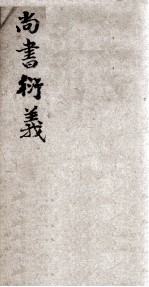 尚書衍義